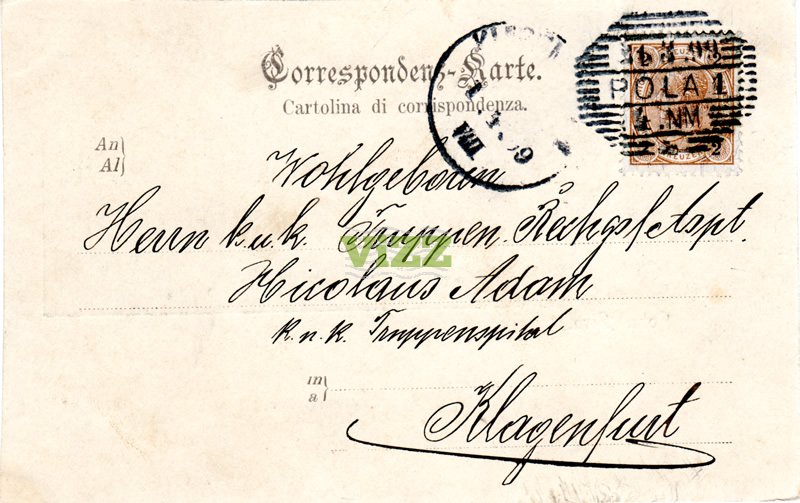 Correspondenz-Karte.
Cartolina di corrispondenza.
POLA 1
4.NM
2
An
Al
Wohlgeboren
Herrn k.u.k. Truppen Rechgs/Aspt.
VIZZ
Nicolaus Adam
k.u.k. Truppenspital
in
a
Klagenfurt